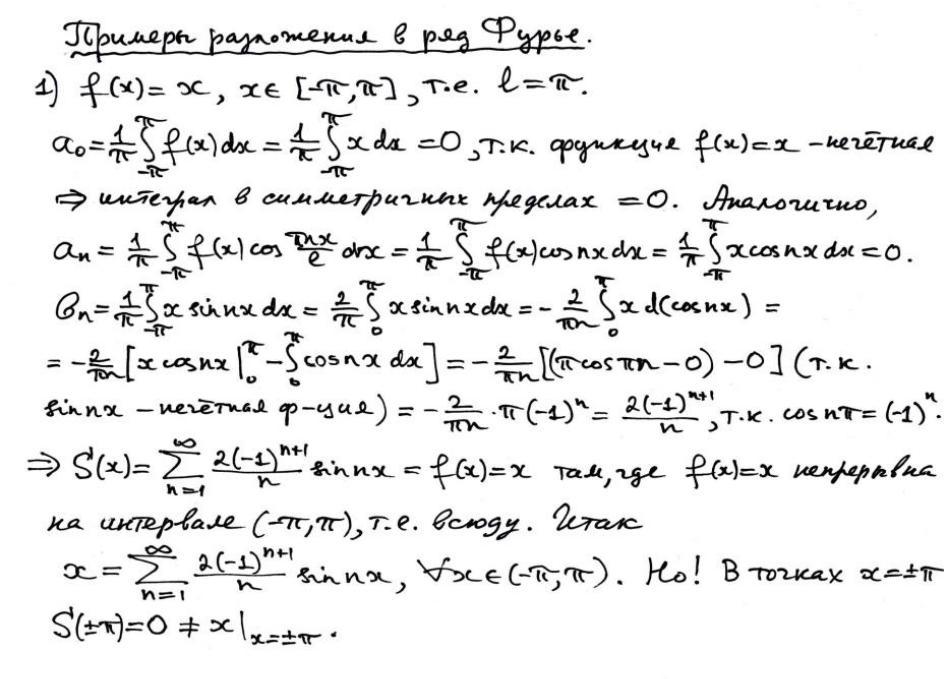 Примеры разложения в ряд Фурье.
1) f(x) = x, x∈ [-π,π], т.е. l = π.
a₀ = 1/π ∫_{-π}^{π} f(x)dx = 1/π ∫_{-π}^{π} x dx = 0, т.к. функция f(x)=x – нечётная
⇒ интеграл в симметричных пределах = 0. Аналогично,
aₙ = 1/π ∫_{-π}^{π} f(x) cos πnx/l dx = 1/π ∫_{-π}^{π} f(x) cos nx dx = 1/π ∫_{-π}^{π} x cos nx dx = 0.
bₙ = 1/π ∫_{-π}^{π} x sin nx dx = 2/π ∫_{0}^{π} x sin nx dx = - 2/πn ∫_{0}^{π} x d(cos nx) =
= - 2/πn [x cos nx |_{0}^{π} - ∫_{0}^{π} cos nx dx] = - 2/πn [(π cos πn - 0) - 0] (т.к.
sin nx – нечётная ф-ция) = - 2/πn · π (-1)ⁿ = 2(-1)ⁿ⁺¹/n, т.к. cos nπ = (-1)ⁿ.
⇒ S(x) = ∑_{n=1}^{∞} 2(-1)ⁿ⁺¹/n sin nx = f(x) = x там, где f(x)=x непрерывна
на интервале (-π,π), т.е. всюду. Итак
x = ∑_{n=1}^{∞} 2(-1)ⁿ⁺¹/n sin nx, ∀x∈(-π,π). Но! В точках x=±π
S(±π)=0 ≠ x|_{x=±π}.